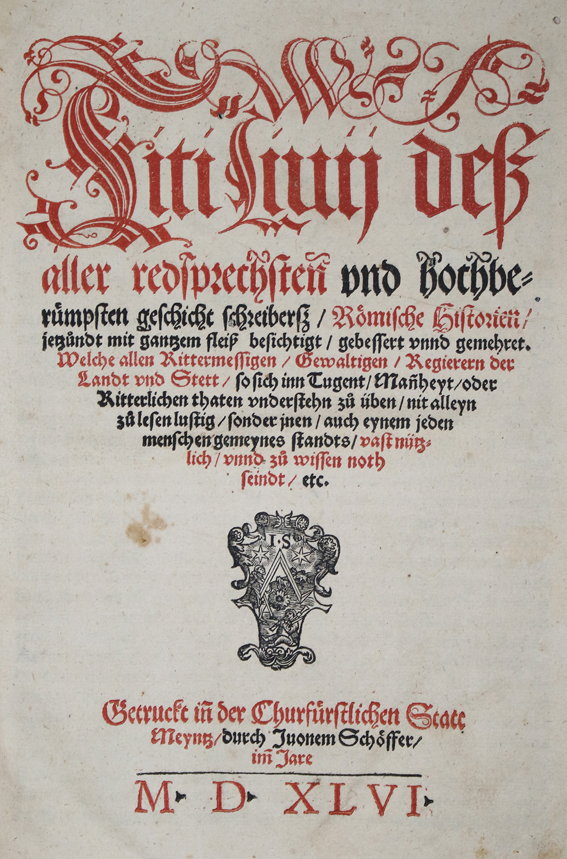 Titi Liuij deß
aller redsprechsten̄ vnd hochbe⸗
rümpsten geschicht schreibersz / Römische Historien̄ /
jetzündt mit gantzem fleiß besichtigt / gebessert vnnd gemehret.
Welche allen Rittermessigen / Gewaltigen / Regierern der
Landt vnd Stett / so sich inn Tugent / Mañheyt / oder
Ritterlichen thaten vnderstehn zů üben / nit alleyn
zů lesen lustig / sonder jnen / auch eynem jeden
menschen gemeynes standts / vast nütz⸗
lich / vnnd zů wissen noth
seindt / etc.
I·S
Getruckt in̄ der Churfürstlichen Statt
Meyntz / durch Juonem Schöffer /
im̄ Jare
M D XLVI